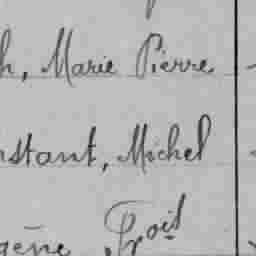 h, Marie Pierre
nstant, Michel
gène,